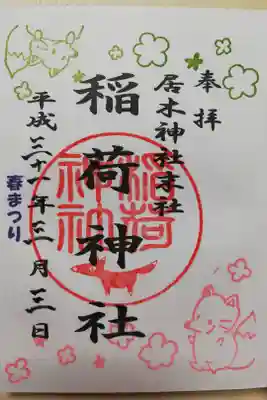 奉拝
居木神社末社
稲荷神社
平成三十一年三月三日
春まつり